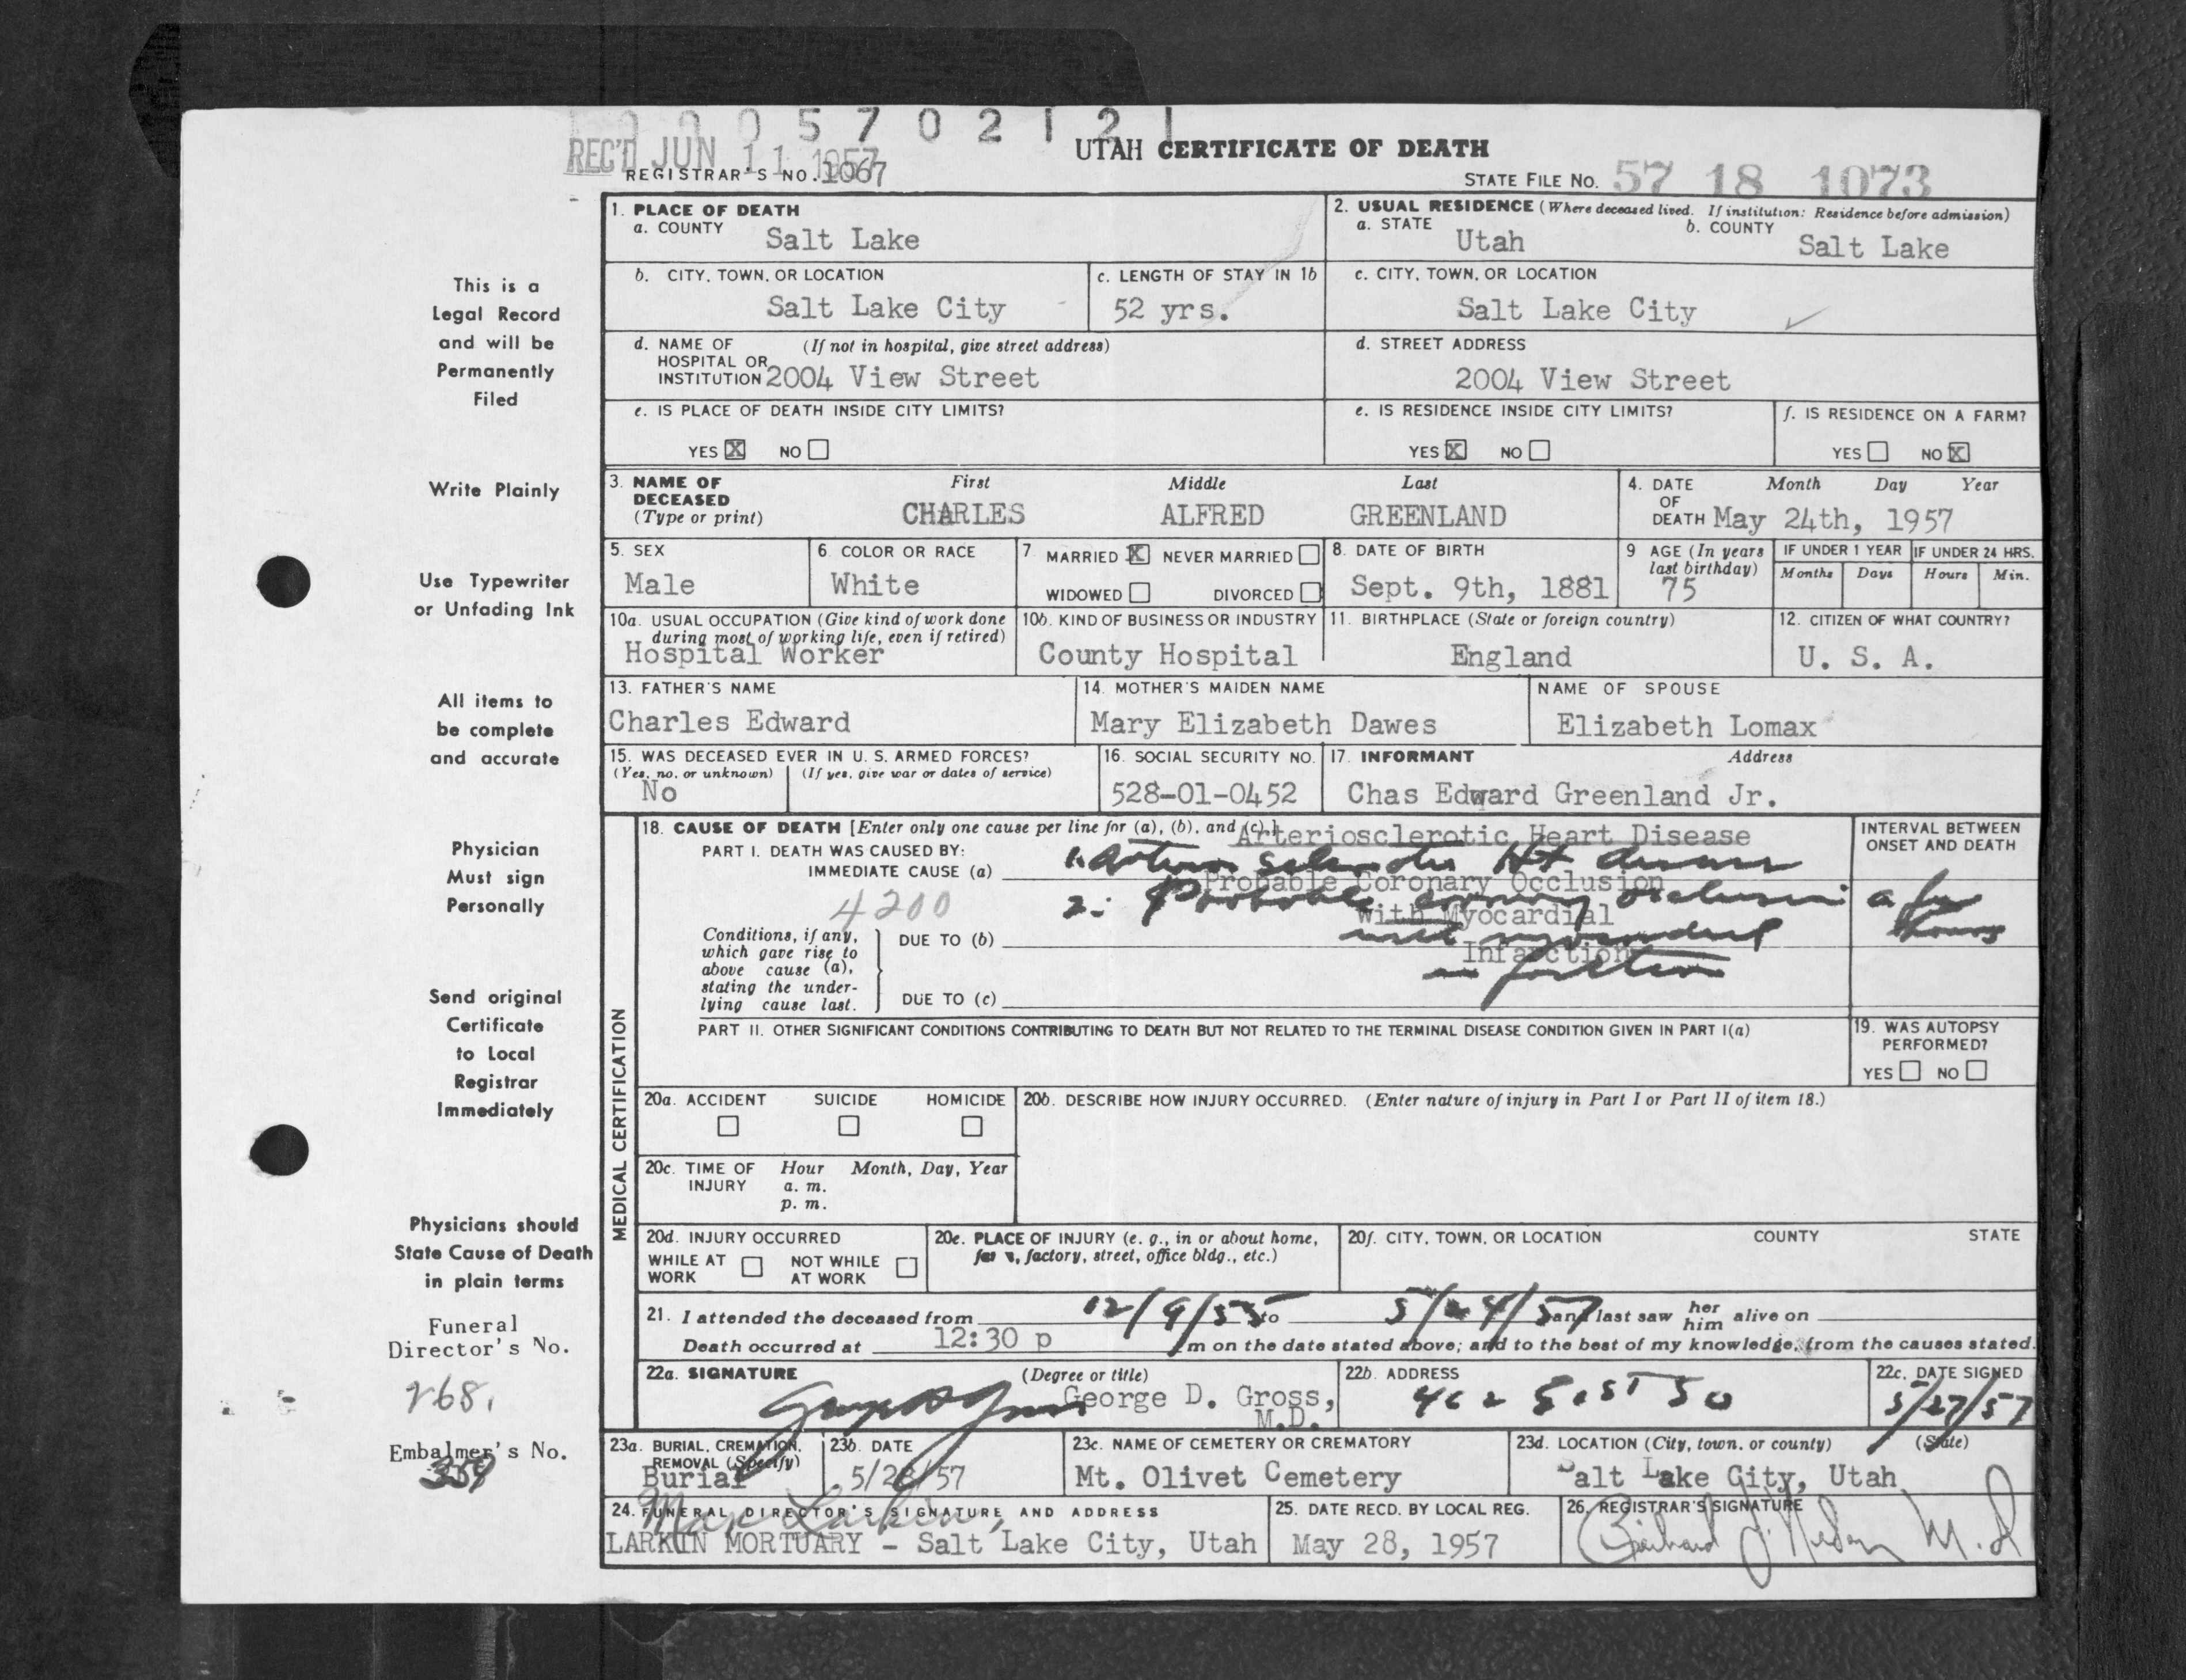 0 0 0 5 7 0 2 1 2 1
REC'D JUN 11 1957
UTAH CERTIFICATE OF DEATH
REGISTRAR'S NO. 1067
STATE FILE NO. 57 18 1073
This is a
Legal Record
and will be
Permanently
Filed
Write Plainly
Use Typewriter
or Unfading Ink
All items to
be complete
and accurate
Physician
Must sign
Personally
Send original
Certificate
to Local
Registrar
Immediately
Physicians should
State Cause of Death
in plain terms
Funeral
Director's No.
268.
Embalmer's No.
359
1. PLACE OF DEATH
a. COUNTY Salt Lake
2. USUAL RESIDENCE (Where deceased lived. If institution: Residence before admission)
a. STATE Utah b. COUNTY Salt Lake
b. CITY, TOWN, OR LOCATION
Salt Lake City
c. LENGTH OF STAY IN 1b
52 yrs.
c. CITY, TOWN, OR LOCATION
Salt Lake City
d. NAME OF (If not in hospital, give street address)
HOSPITAL OR
INSTITUTION 2004 View Street
d. STREET ADDRESS
2004 View Street
e. IS PLACE OF DEATH INSIDE CITY LIMITS?
YES X NO
e. IS RESIDENCE INSIDE CITY LIMITS?
YES X NO
f. IS RESIDENCE ON A FARM?
YES NO X
3. NAME OF First Middle Last
DECEASED
(Type or print) CHARLES ALFRED GREENLAND
4. DATE Month Day Year
OF
DEATH May 24th, 1957
5. SEX
Male
6. COLOR OR RACE
White
7. MARRIED X NEVER MARRIED
WIDOWED DIVORCED
8. DATE OF BIRTH
Sept. 9th, 1881
9 AGE (In years
last birthday)
75
IF UNDER 1 YEAR IF UNDER 24 HRS.
Months Days Hours Min.
10a. USUAL OCCUPATION (Give kind of work done
during most of working life, even if retired)
Hospital Worker
10b. KIND OF BUSINESS OR INDUSTRY
County Hospital
11. BIRTHPLACE (State or foreign country)
England
12. CITIZEN OF WHAT COUNTRY?
U. S. A.
13. FATHER'S NAME
Charles Edward
14. MOTHER'S MAIDEN NAME
Mary Elizabeth Dawes
NAME OF SPOUSE
Elizabeth Lomax
15. WAS DECEASED EVER IN U. S. ARMED FORCES?
(Yes, no, or unknown) (If yes, give war or dates of service)
No
16. SOCIAL SECURITY NO.
528-01-0452
17. INFORMANT Address
Chas Edward Greenland Jr.
MEDICAL CERTIFICATION
18. CAUSE OF DEATH [Enter only one cause per line for (a), (b), and (c).]
Arteriosclerotic Heart Disease
PART I. DEATH WAS CAUSED BY:
IMMEDIATE CAUSE (a)
Probable Coronary Occlusion
2. Probable coronary occlusion
4200
With Myocardial
with myocardial
Infarction
infarction
Conditions, if any,
which gave rise to
above cause (a),
stating the under-
lying cause last.
DUE TO (b)
DUE TO (c)
INTERVAL BETWEEN
ONSET AND DEATH
a few
hours
PART II. OTHER SIGNIFICANT CONDITIONS CONTRIBUTING TO DEATH BUT NOT RELATED TO THE TERMINAL DISEASE CONDITION GIVEN IN PART I(a)
19. WAS AUTOPSY
PERFORMED?
YES NO
20a. ACCIDENT SUICIDE HOMICIDE
20b. DESCRIBE HOW INJURY OCCURRED. (Enter nature of injury in Part I or Part II of item 18.)
20c. TIME OF Hour Month, Day, Year
INJURY a. m.
p. m.
20d. INJURY OCCURRED
WHILE AT NOT WHILE
WORK AT WORK
20e. PLACE OF INJURY (e. g., in or about home,
farm, factory, street, office bldg., etc.)
20f. CITY, TOWN, OR LOCATION COUNTY STATE
21. I attended the deceased from 12/9/55 to 5/24/57 and last saw her him alive on
Death occurred at 12:30 p m on the date stated above; and to the best of my knowledge, from the causes stated.
22a. SIGNATURE (Degree or title)
George D. Gross,
M.D.
22b. ADDRESS
22c. DATE SIGNED
5/27/57
23a. BURIAL, CREMATION,
REMOVAL (Specify)
Burial
23b. DATE
5/28/57
23c. NAME OF CEMETERY OR CREMATORY
Mt. Olivet Cemetery
23d. LOCATION (City, town, or county) (State)
Salt Lake City, Utah
24. FUNERAL DIRECTOR'S SIGNATURE AND ADDRESS
Max Larkin,
LARKIN MORTUARY - Salt Lake City, Utah
25. DATE RECD. BY LOCAL REG.
May 28, 1957
26. REGISTRAR'S SIGNATURE
M.D